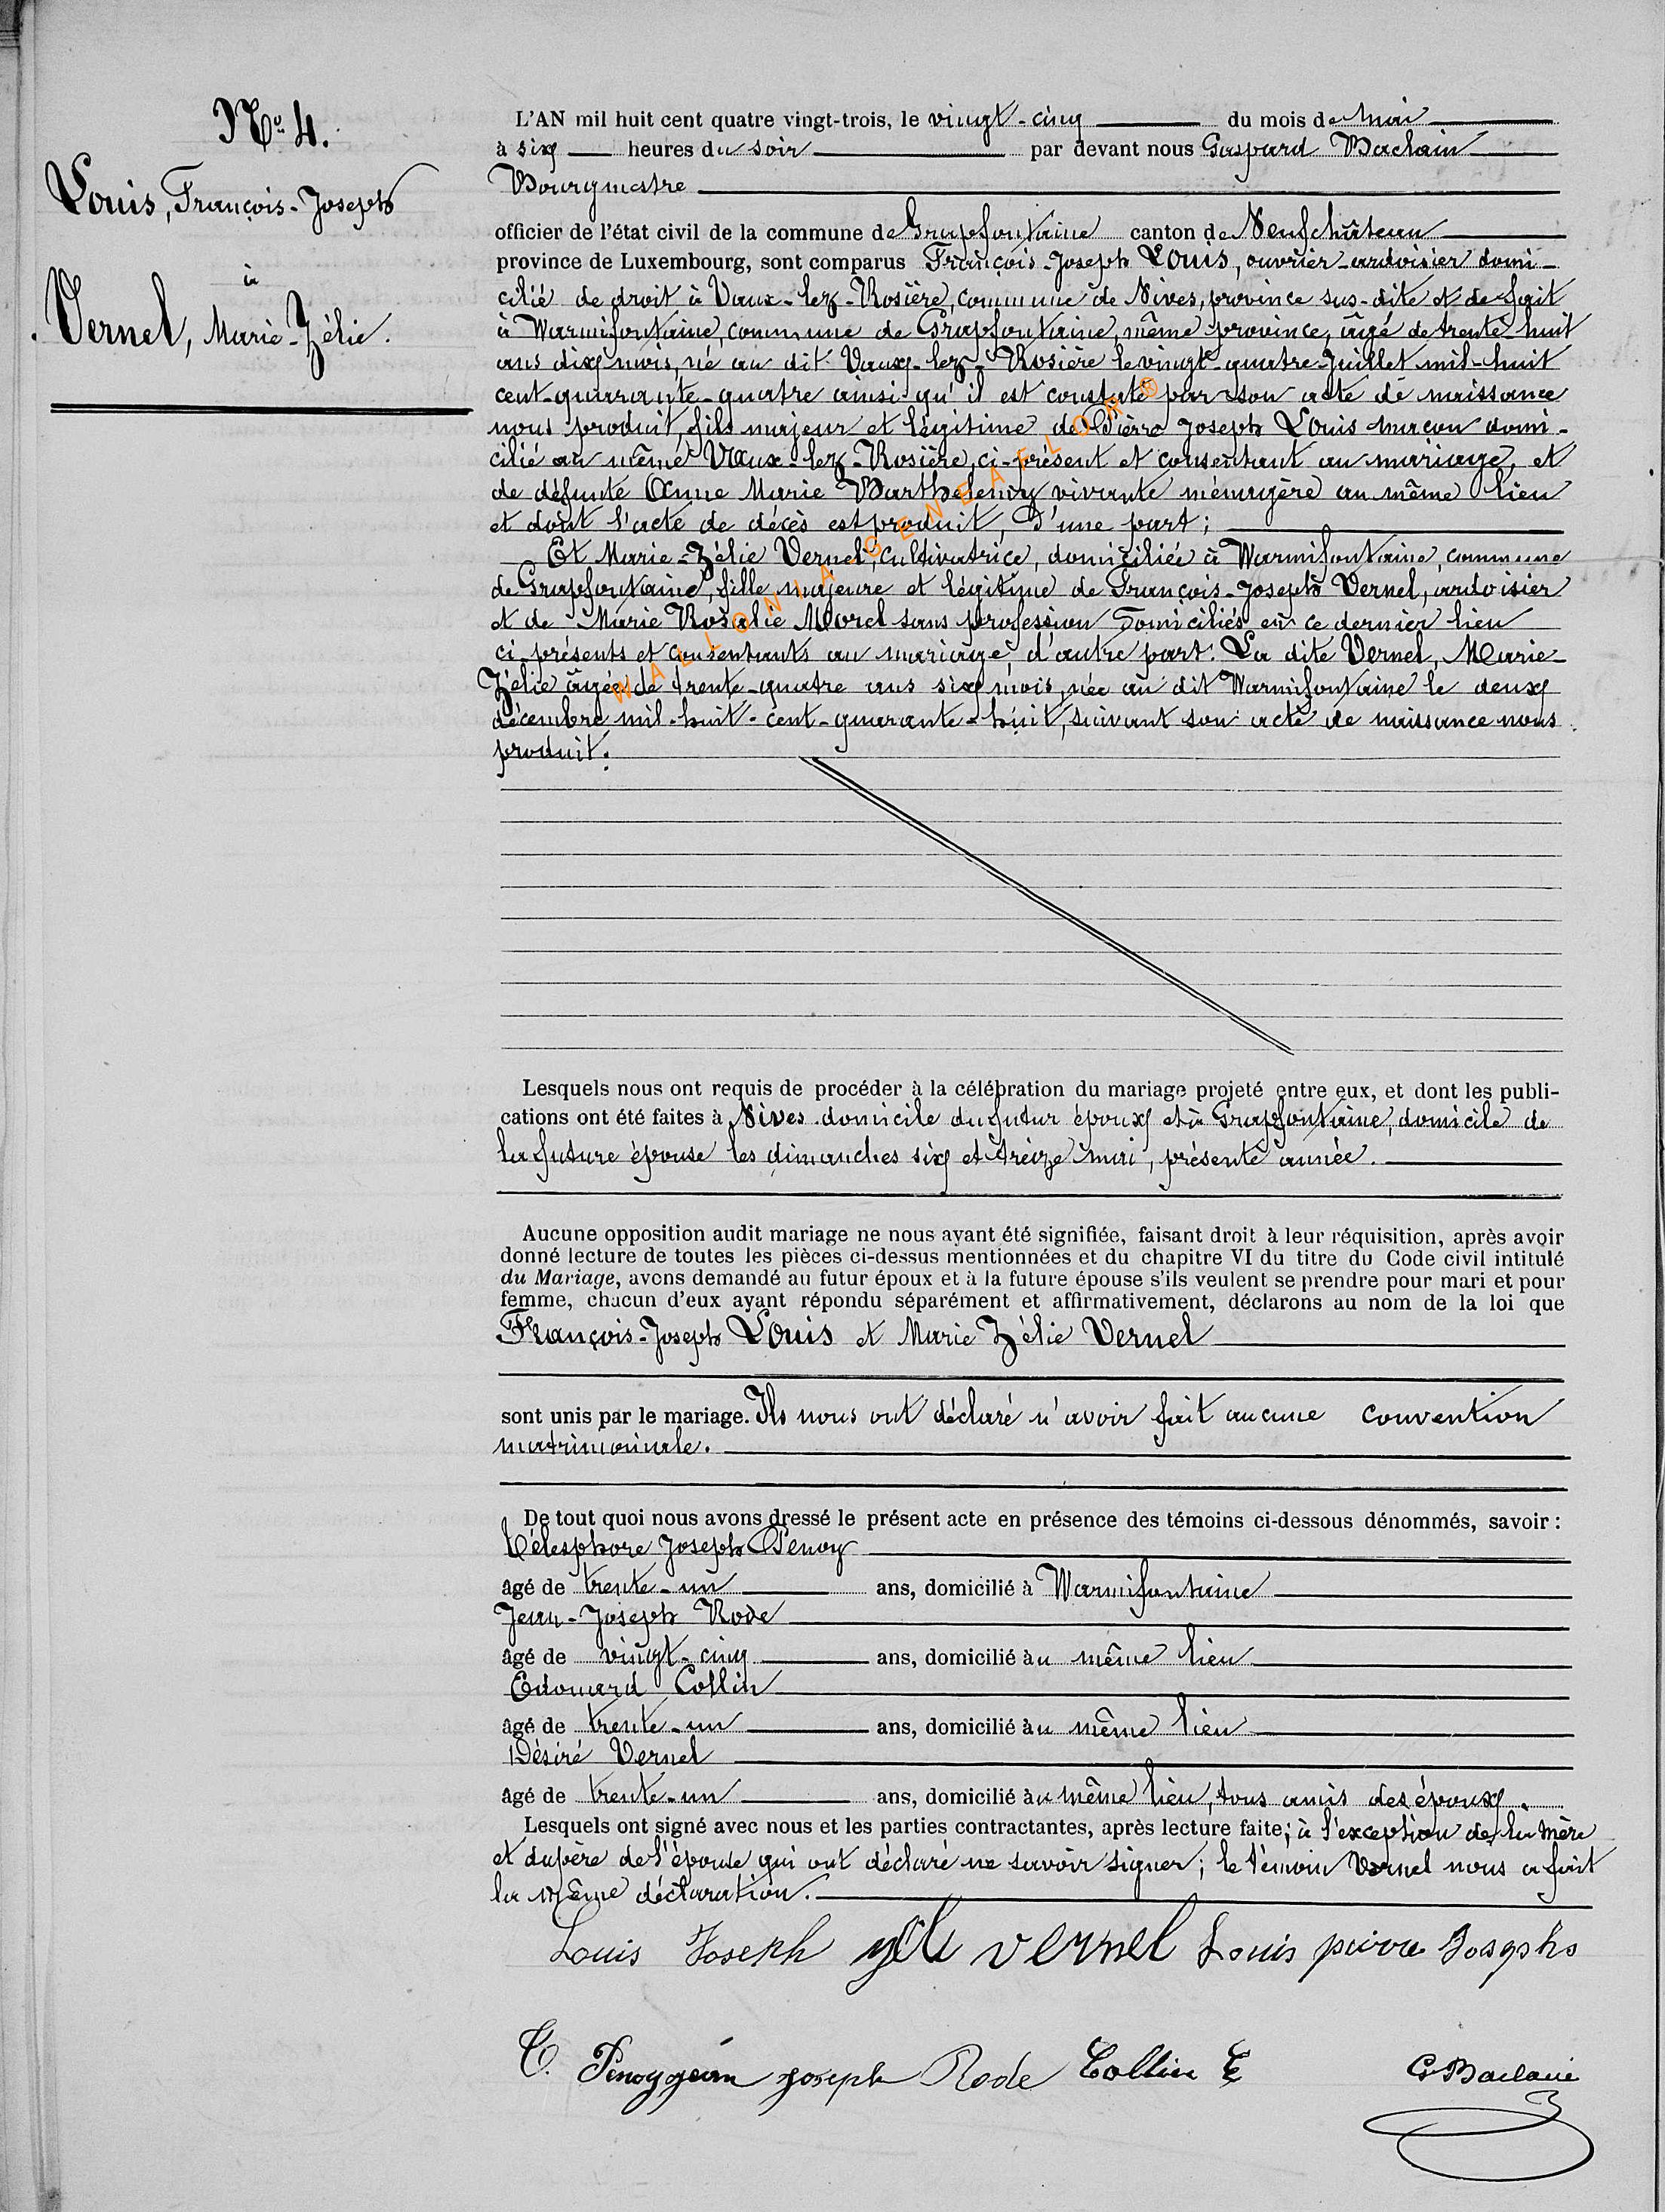 No 4.
Louis, François-Joseph
à
Vernel, Marie-Zélie.
L'AN mil huit cent quatre vingt-trois, le vingt-cinq du mois de Mai
à six heures du soir par devant nous Gaspard Baclain
Bourgmestre
officier de l'état civil de la commune de Grapfontaine canton de Neufchâteau
province de Luxembourg, sont comparus François-Joseph Louis, ouvrier-ardoisier domi-
cilié de droit à Vaux-lez-Rosière, commune de Nives, province sus-dite et de fait
à Warmifontaine, commune de Grapfontaine, même province, âgé de trente-huit
ans dix mois, né au dit Vaux-lez-Rosière le vingt-quatre Juillet mil-huit
cent-quarante-quatre ainsi qu'il est constaté par son acte de naissance
nous produit, fils majeur et légitime de Pierre Joseph Louis maçon domi-
cilié au même Vaux-lez-Rosière, ci-présent et consentant au mariage, et
de défunte Anne Marie Barthelemy vivante ménagère au même lieu
et dont l'acte de décès est produit, d'une part;
Et Marie-Zélie Vernel, cultivatrice, domiciliée à Warmifontaine, commune
de Grapfontaine, fille majeure et légitime de François-Joseph Vernel, ardoisier
et de Marie Rosalie Morel sans profession domiciliés en ce dernier lieu
ci-présents et consentants au mariage, d'autre part. La dite Vernel, Marie-
Zélie âgée de trente-quatre ans six mois, née au dit Warmifontaine le deux
décembre mil-huit-cent-quarante-huit, suivant son acte de naissance nous
produit.
WALLONIA-GENEAFLOR®
Lesquels nous ont requis de procéder à la célébration du mariage projeté entre eux, et dont les publi-
cations ont été faites à Nives domicile du futur époux et à Grapfontaine, domicile de
la future épouse les dimanches six et treize mai, présente année.
Aucune opposition audit mariage ne nous ayant été signifiée, faisant droit à leur réquisition, après avoir
donné lecture de toutes les pièces ci-dessus mentionnées et du chapitre VI du titre du Code civil intitulé
du Mariage, avons demandé au futur époux et à la future épouse s'ils veulent se prendre pour mari et pour
femme, chacun d'eux ayant répondu séparément et affirmativement, déclarons au nom de la loi que
François-Joseph Louis et Marie Zélie Vernel
sont unis par le mariage. Ils nous ont déclaré n'avoir fait aucune convention
matrimoniale.
De tout quoi nous avons dressé le présent acte en présence des témoins ci-dessous dénommés, savoir:
Télesphore Joseph Penoy
âgé de trente-un ans, domicilié à Warmifontaine
Jean-Joseph Rode
âgé de vingt-cinq ans, domicilié au même lieu
Edouard Collin
âgé de trente-un ans, domicilié au même lieu
Désiré Vernel
âgé de trente-un ans, domicilié au même lieu, tous amis des époux.
Lesquels ont signé avec nous et les parties contractantes, après lecture faite; à l'exception de la mère
et du père de l'épouse qui ont déclaré ne savoir signer; le témoin Vernel nous a fait
la même déclaration.
Louis Joseph vernel Louis pierre Josephs
T. Penoy jean joseph Rode Collin E G Baclain